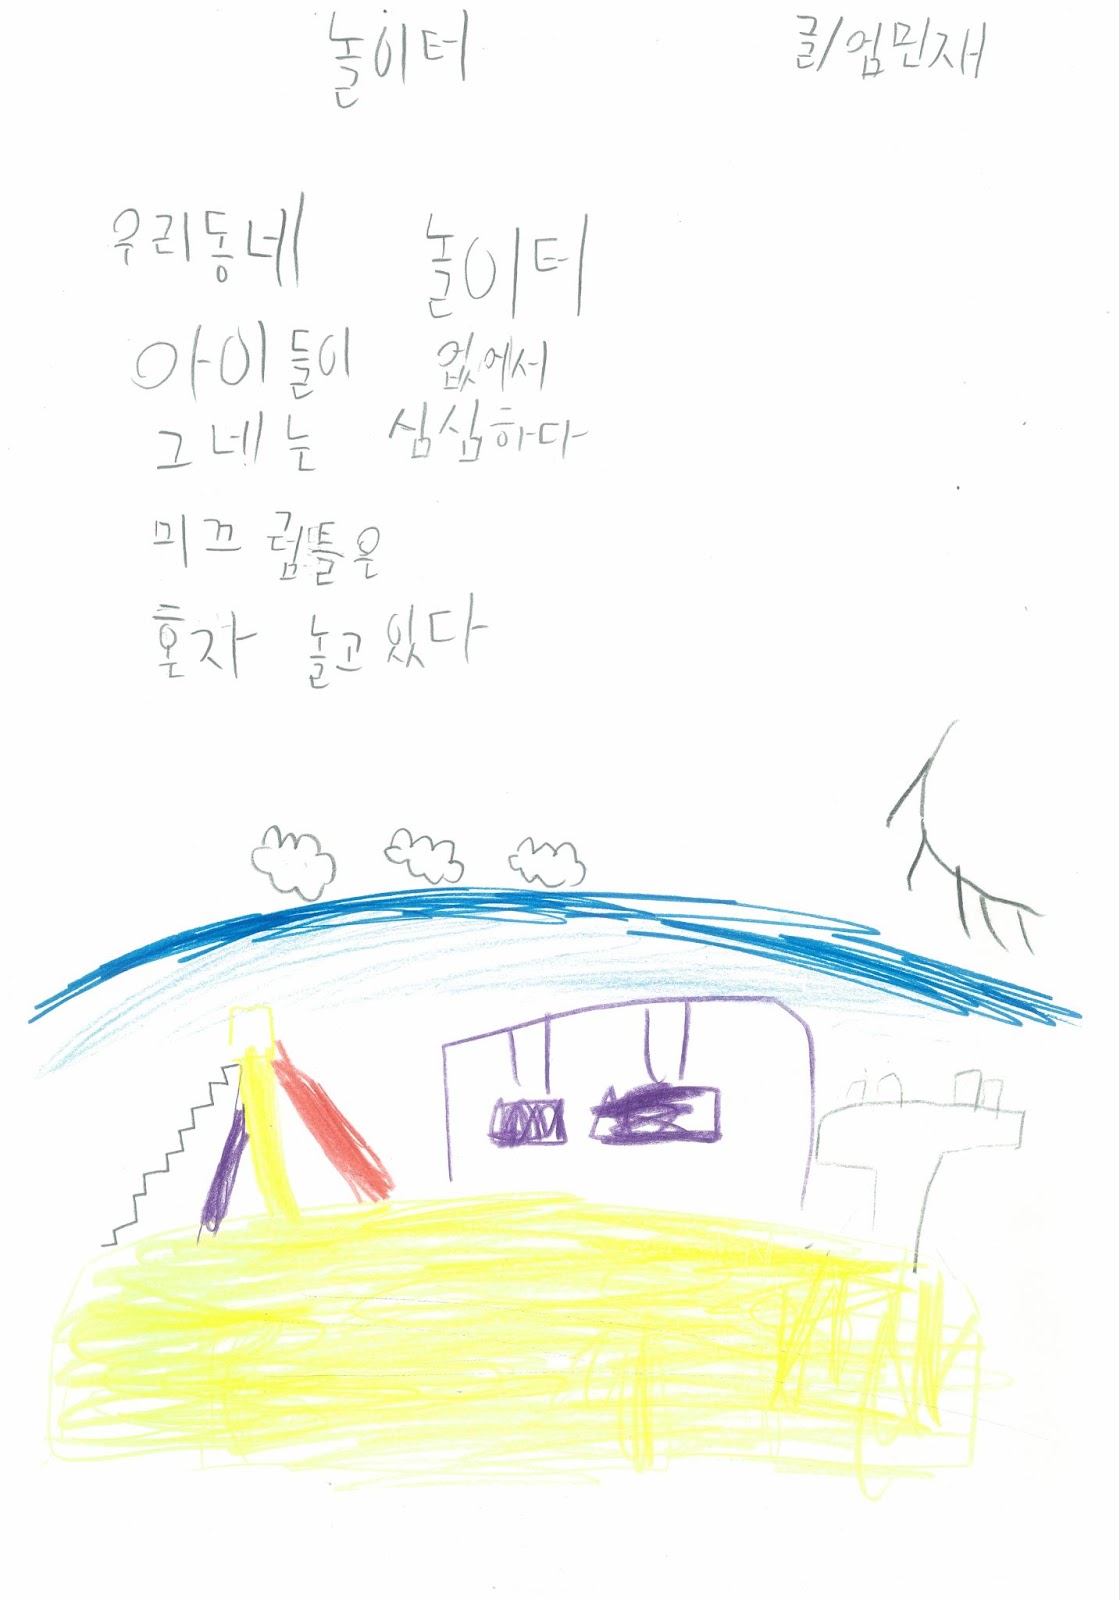 놀이터 글/엄민재
우리동네 놀이터
아이들이 없에서
그네는 심심하다
미끄럼틀은
혼자 놀고있다